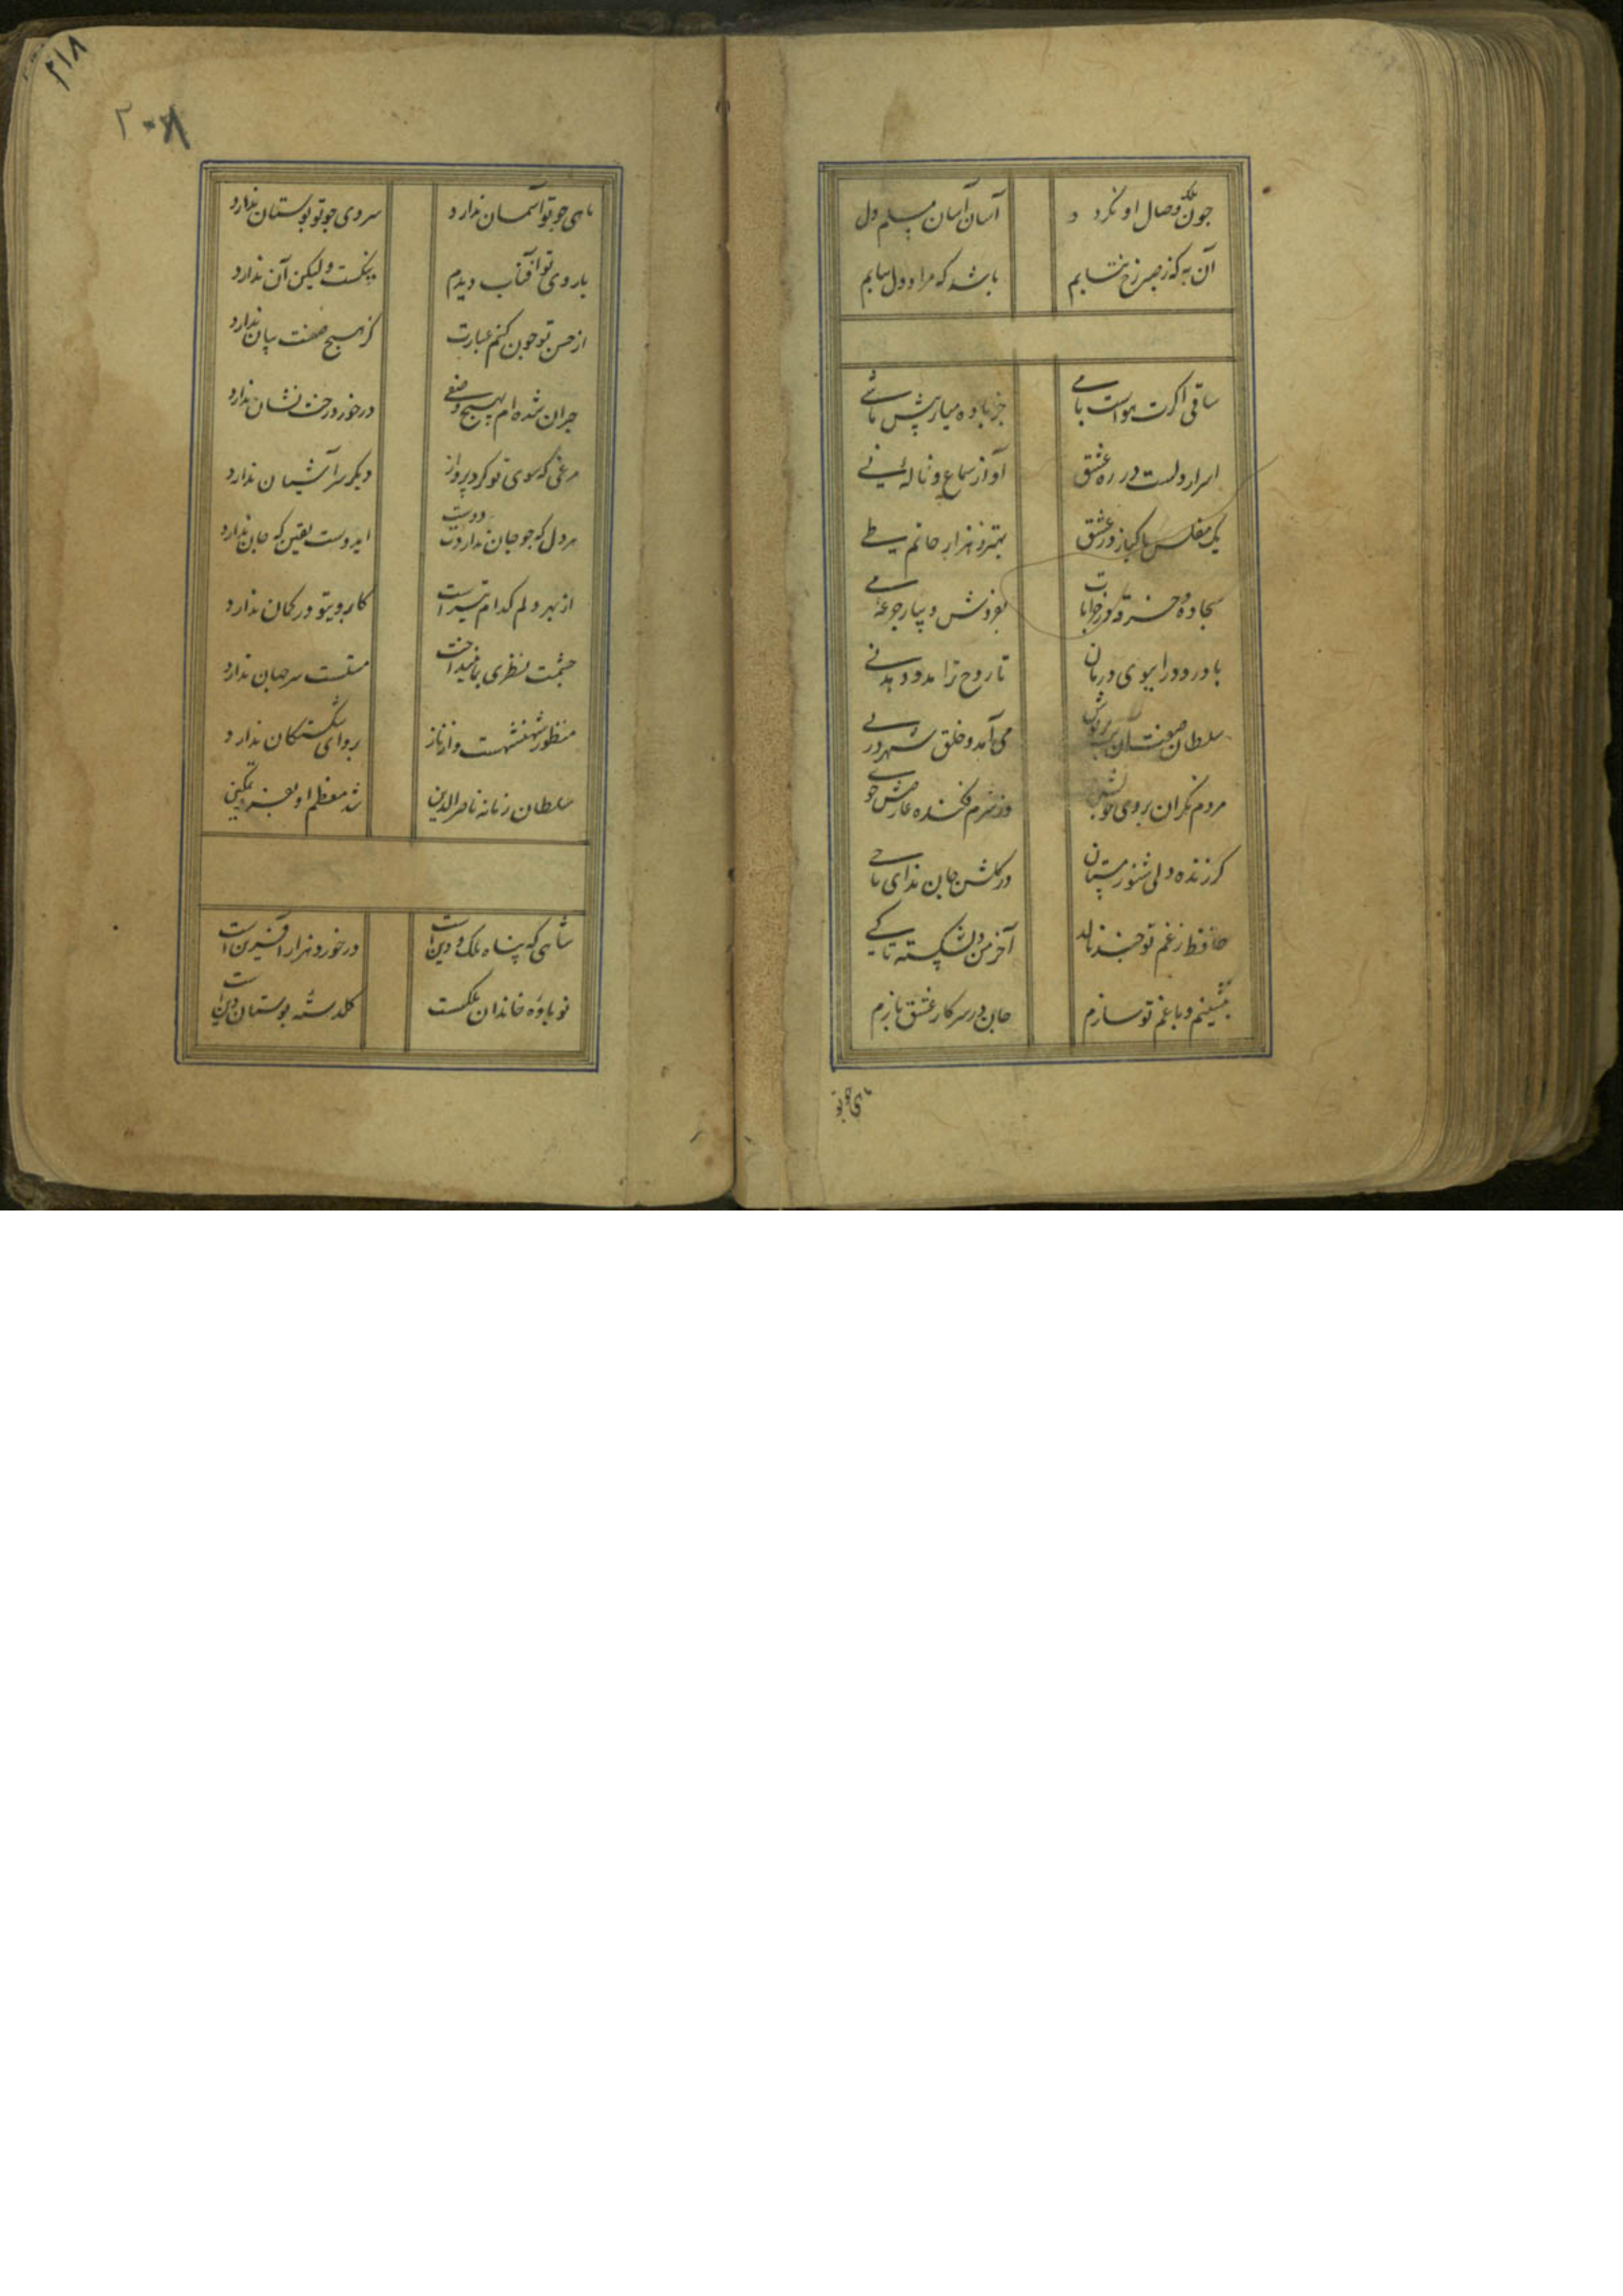 چون ملک وصال او نکردد آسان آسان مسلم دل
آن به که ز صبر رخ نتابم باشد که مراد دل بیابم
ساقی اکرت هواست با می جز باده میار پیش ما شی
اسرار دلست در ره عشق آواز سماع و ناله نی
یک مفلس پاکباز در عشق بهتر ز هزار حاتم طی
سجاده و خرقه در خرابات بفروش و بیار جرعه می
با درد درآ ببوی درمان تا روح ترا مدد دهد نی
سلطان صفت آن بت پریوش می آمد و خلق شهر در پی
مردم نکران بروی خوبش وز شرم فکنده عارضش خوی
کر زنده دلی شنو ز مستان در کلشن جان ندای یا حی
حافظ ز غم تو چند نالد آخر من دل شکسته تا کی
بنشینم و با غم تو سازم جان در سر کار عشق بازم
ماهی چو تو
۲۱۸
ماهی چو تو آسمان ندارد سروی چو تو بوستان ندارد
با روی تو آفتاب دیدم نیکست ولیکن آن ندارد
از حسن تو چون کنم عبارت کز هیچ صفت بیان ندارد
حیران شده ام بهیچ وصفی در خورد رخت نشان ندارد
مرغی که سوی تو کرد پرواز دیکر سر آشیان ندارد
هر دل که چو جان نداردت دوست ایدوست یقین که جان ندارد
از بهر دلم کدام تیر است کابروی تو در کمان ندارد
چشمت نظری بما نینداخت مستست سر جهان ندارد
منظور شهنشهست و از ناز پروای شکستکان ندارد
سلطان زمانه ناصر الدین شد معظم او بعز و تمکین
شاهی که پناه ملک و دین است در خورد هزار آفرین است
نوباوه خاندان ملکست کلدسته بوستان دین است